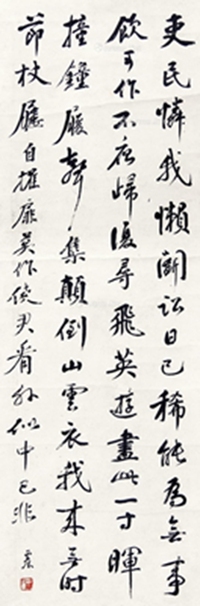 吏民憐我懶鬭訟日已稀能為無事
飲可作不夜歸復尋飛英遊盡此一寸暉
撞鐘履聲集顛倒山雲衣我來無時
節杖屨自推扉莫作使君看外似中已非